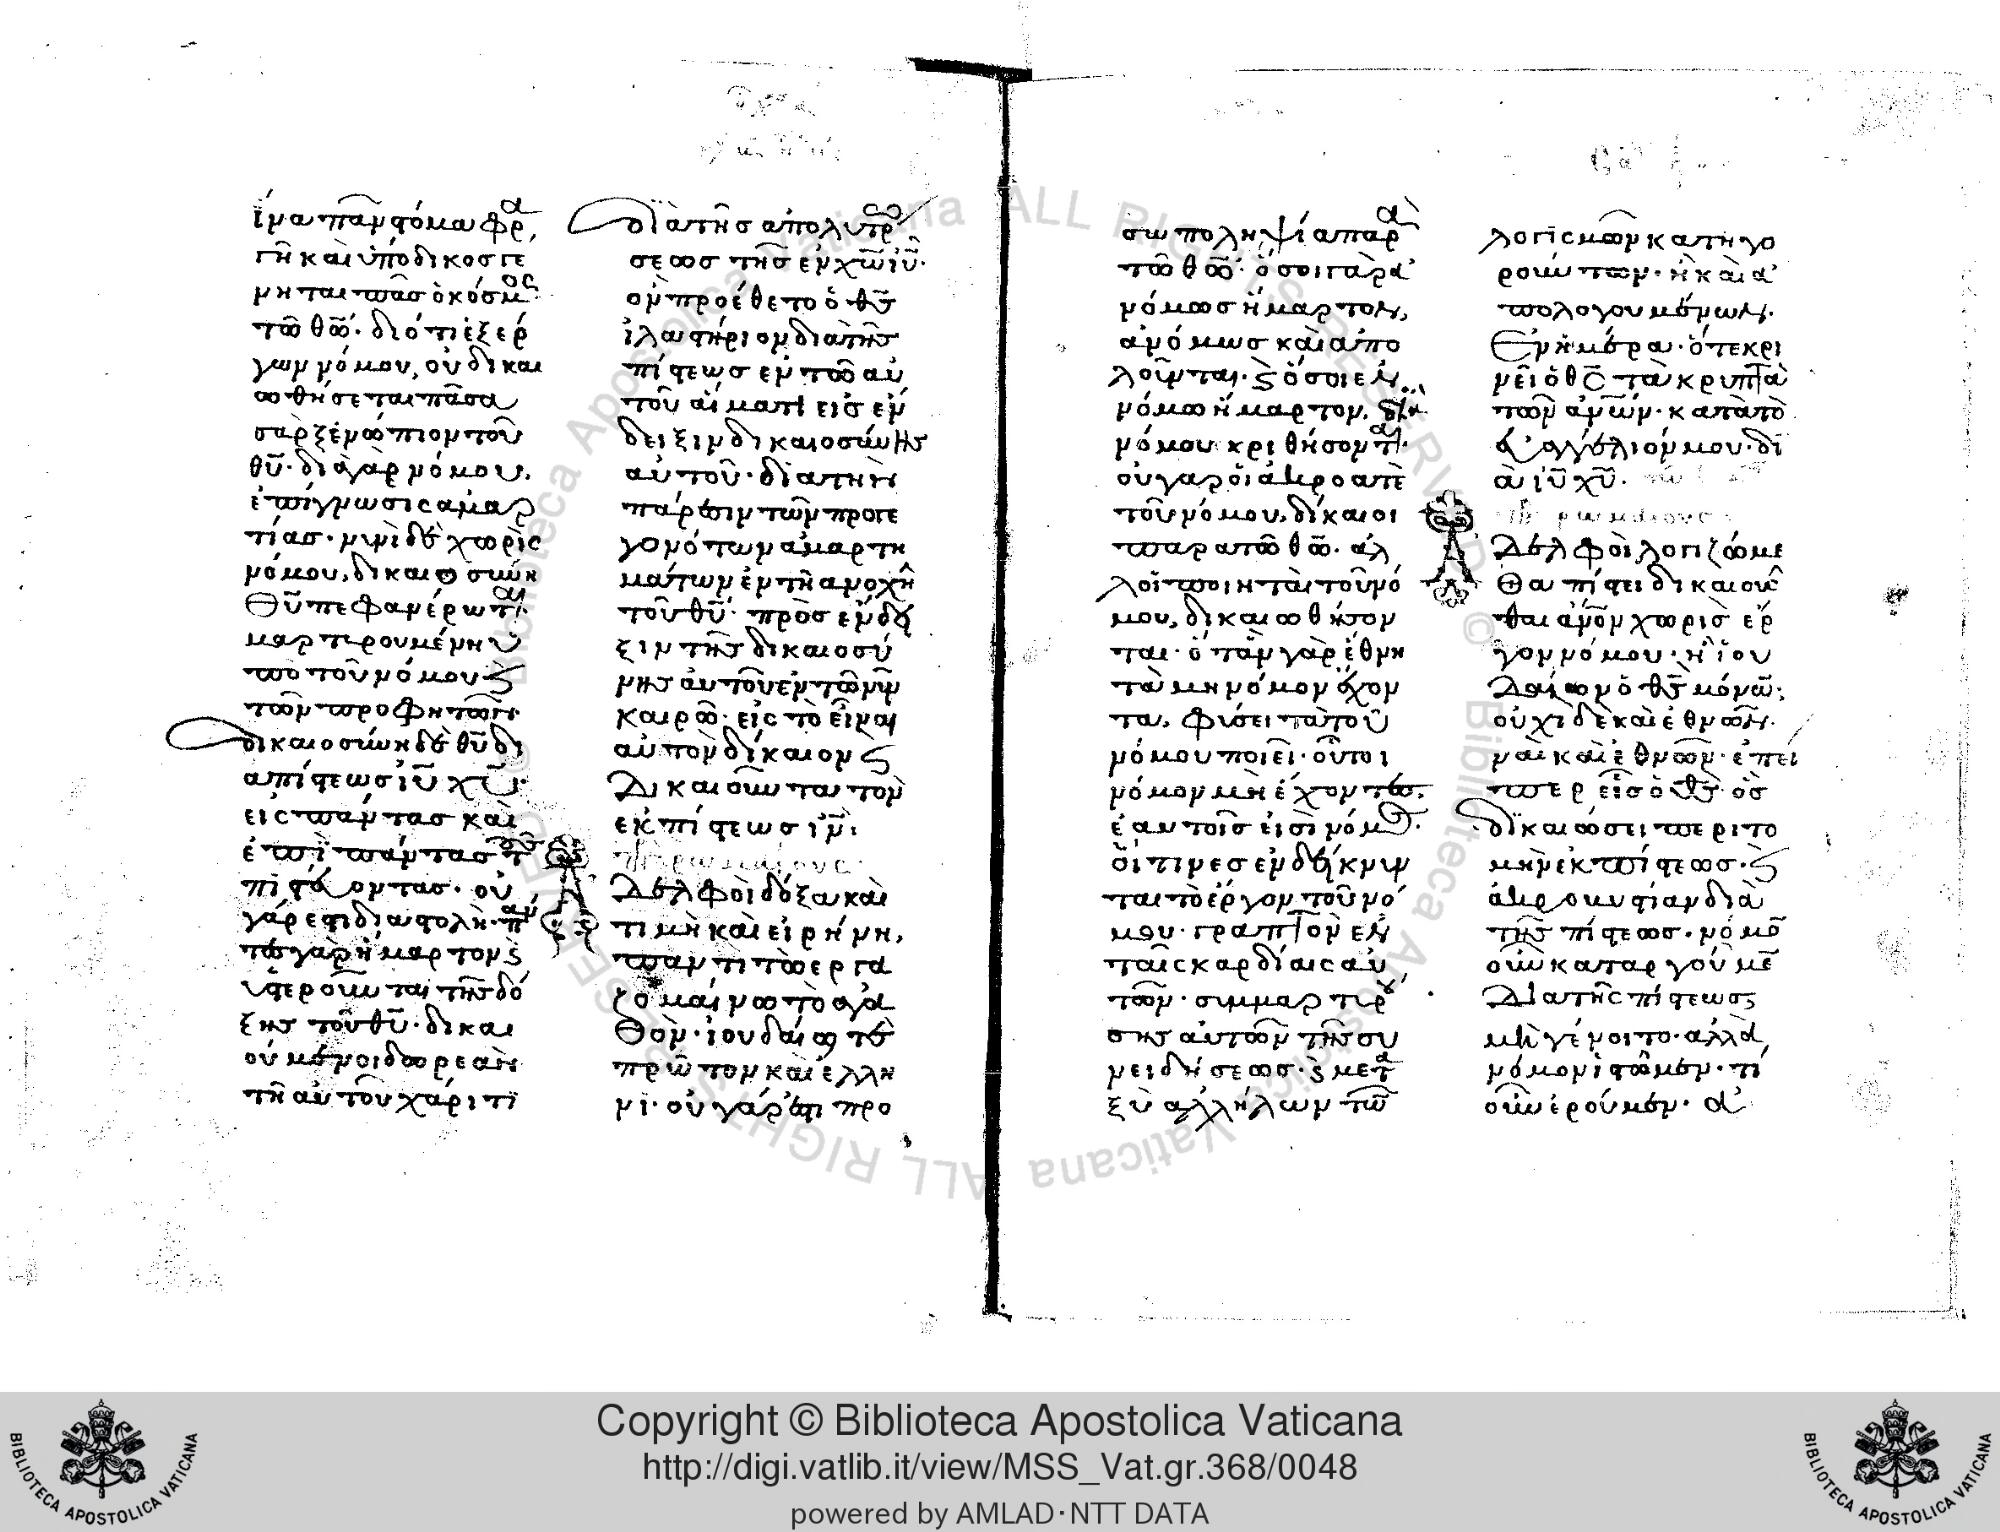 ἵνα πᾶν στόμα φρα
γῆ καὶ ὑπόδικος γέ
νηται πᾶς ὁ κόσμος
τῶ θῶ· διότι ἐξ ἔρ
γων νόμου, οὐ δικαι
ωθήσεται πᾶσα
σὰρξ ἐνώπιον τοῦ
θῦ· διὰ γὰρ νόμου,
ἐπίγνωσις ἁμαρ
τίας· νυνὶ δὲ χωρὶς
νόμου, δικαιοσύνη
θῦ πεφανέρωται·
μαρτυρουμένη ὑ
πὸ τοῦ νόμου ϗ
τῶν προφητῶν·
δικαιοσύνη δὲ θῦ δι
ὰ πίστεως ἰῦ χῦ·
εἰς πάντας καὶ
ἐπὶ πάντας τοὺς
πιστεύοντας· οὐ
γάρ ἐστι διαστολὴ· πάν
τες γὰρ ἥμαρτον ϗ
ὑστεροῦνται τῆς δό
ξης τοῦ θῦ· δικαι
ούμενοι δωρεὰν
τῆ αὐτοῦ χάριτι
διὰ τῆς ἀπολυτρώ
σεως τῆς ἐν χῶ ἰῦ·
ὃν προέθετο ὁ θς
ἱλαστήριον διὰ τῆς
πίστεως ἐν τῶ αὐ
τοῦ αἵματι εἰς ἔν
δειξιν δικαιοσύνης
αὐτοῦ· διὰ τὴν
πάρεσιν τῶν προγε
γονότων ἁμαρτη
μάτων ἐν τῆ ἀνοχῆ
τοῦ θῦ· πρὸς ἔνδει
ξιν τῆς δικαιοσύ
νης αὐτοῦ ἐν τῶ νῦν
καιρῶ· εἰς τὸ εἶναι
αὐτὸν δίκαιον ϗ
δικαιοῦντα τὸν
ἐκ πίστεως ἰῦ·
πρὸς ῥωμαίους
Ἀδελφοὶ δόξα καὶ
τιμὴ καὶ εἰρήνη,
παντὶ τῶ ἐργα
ζομένω τὸ ἀγα
θὸν· ἰουδαίω τε
πρῶτον καὶ ἕλλη
νι· οὐ γάρ ἐστι προ
σωποληψία παρὰ
τῶ θῶ· ὅσοι γὰρ ἀ
νόμως ἥμαρτον,
ἀνόμως καὶ ἀπο
λοῦνται· ϗ ὅσοι ἐν
νόμω ἥμαρτον, διὰ
νόμου κριθήσονται·
οὐ γὰρ οἱ ἀκροαταὶ
τοῦ νόμου, δίκαιοι
παρὰ τῶ θῶ· ἀλ
λ' οἱ ποιηταὶ τοῦ νό
μου, δικαιωθήσον
ται· ὅταν γὰρ ἔθνη
τὰ μὴ νόμον ἔχον
τα, φύσει τὰ τοῦ
νόμου ποιεῖ· οὗτοι
νόμον μὴ ἔχοντες,
ἑαυτοῖς εἰσὶ νόμος·
οἵτινες ἐνδείκνυν
ται τὸ ἔργον τοῦ νό
μου· γραπτὸν ἐν
ταῖς καρδίαις αὐ
τῶν· συμμαρτυρού
σης αὐτῶν τῆς συ
νειδήσεως· ϗ μετα
ξὺ ἀλλήλων τῶν
λογισμῶν κατηγο
ρούντων· ἢ καὶ ἀ
πολογουμένων·
Ἐν ἡμέρα· ὅτε κρι
νεῖ ὁ θς τὰ κρυπτὰ
τῶν ἀνων· κατὰ τὸ
εὐαγγέλιόν μου· δι
ὰ ἰῦ χῦ·
πρὸς ῥωμαίους
Ἀδελφοὶ λογιζόμε
θα πίστει δικαιοῦσ
θαι ἄνον χωρὶς ἔρ
γων νόμου· ἢ ἰου
δαίων ὁ θς μόνων·
οὐχὶ δὲ καὶ ἐθνῶν·
ναὶ καὶ ἐθνῶν· ἐπεί
περ εἷς ὁ θς· ὃς
δικαιώσει περιτο
μὴν ἐκ πίστεως· ϗ
ἀκροβυστίαν διὰ
τῆς πίστεως· νόμον
οὖν καταργοῦμεν
διὰ τῆς πίστεως
μὴ γένοιτο· ἀλλὰ
νόμον ἱστῶμεν· τί
οὖν ἐροῦμεν· ἀ
Copyright © Biblioteca Apostolica Vaticana
http://digi.vatlib.it/view/MSS_Vat.gr.368/0048
powered by AMLAD·NTT DATA
BIBLIOTECA APOSTOLICA VATICANA
BIBLIOTECA APOSTOLICA VATICANA